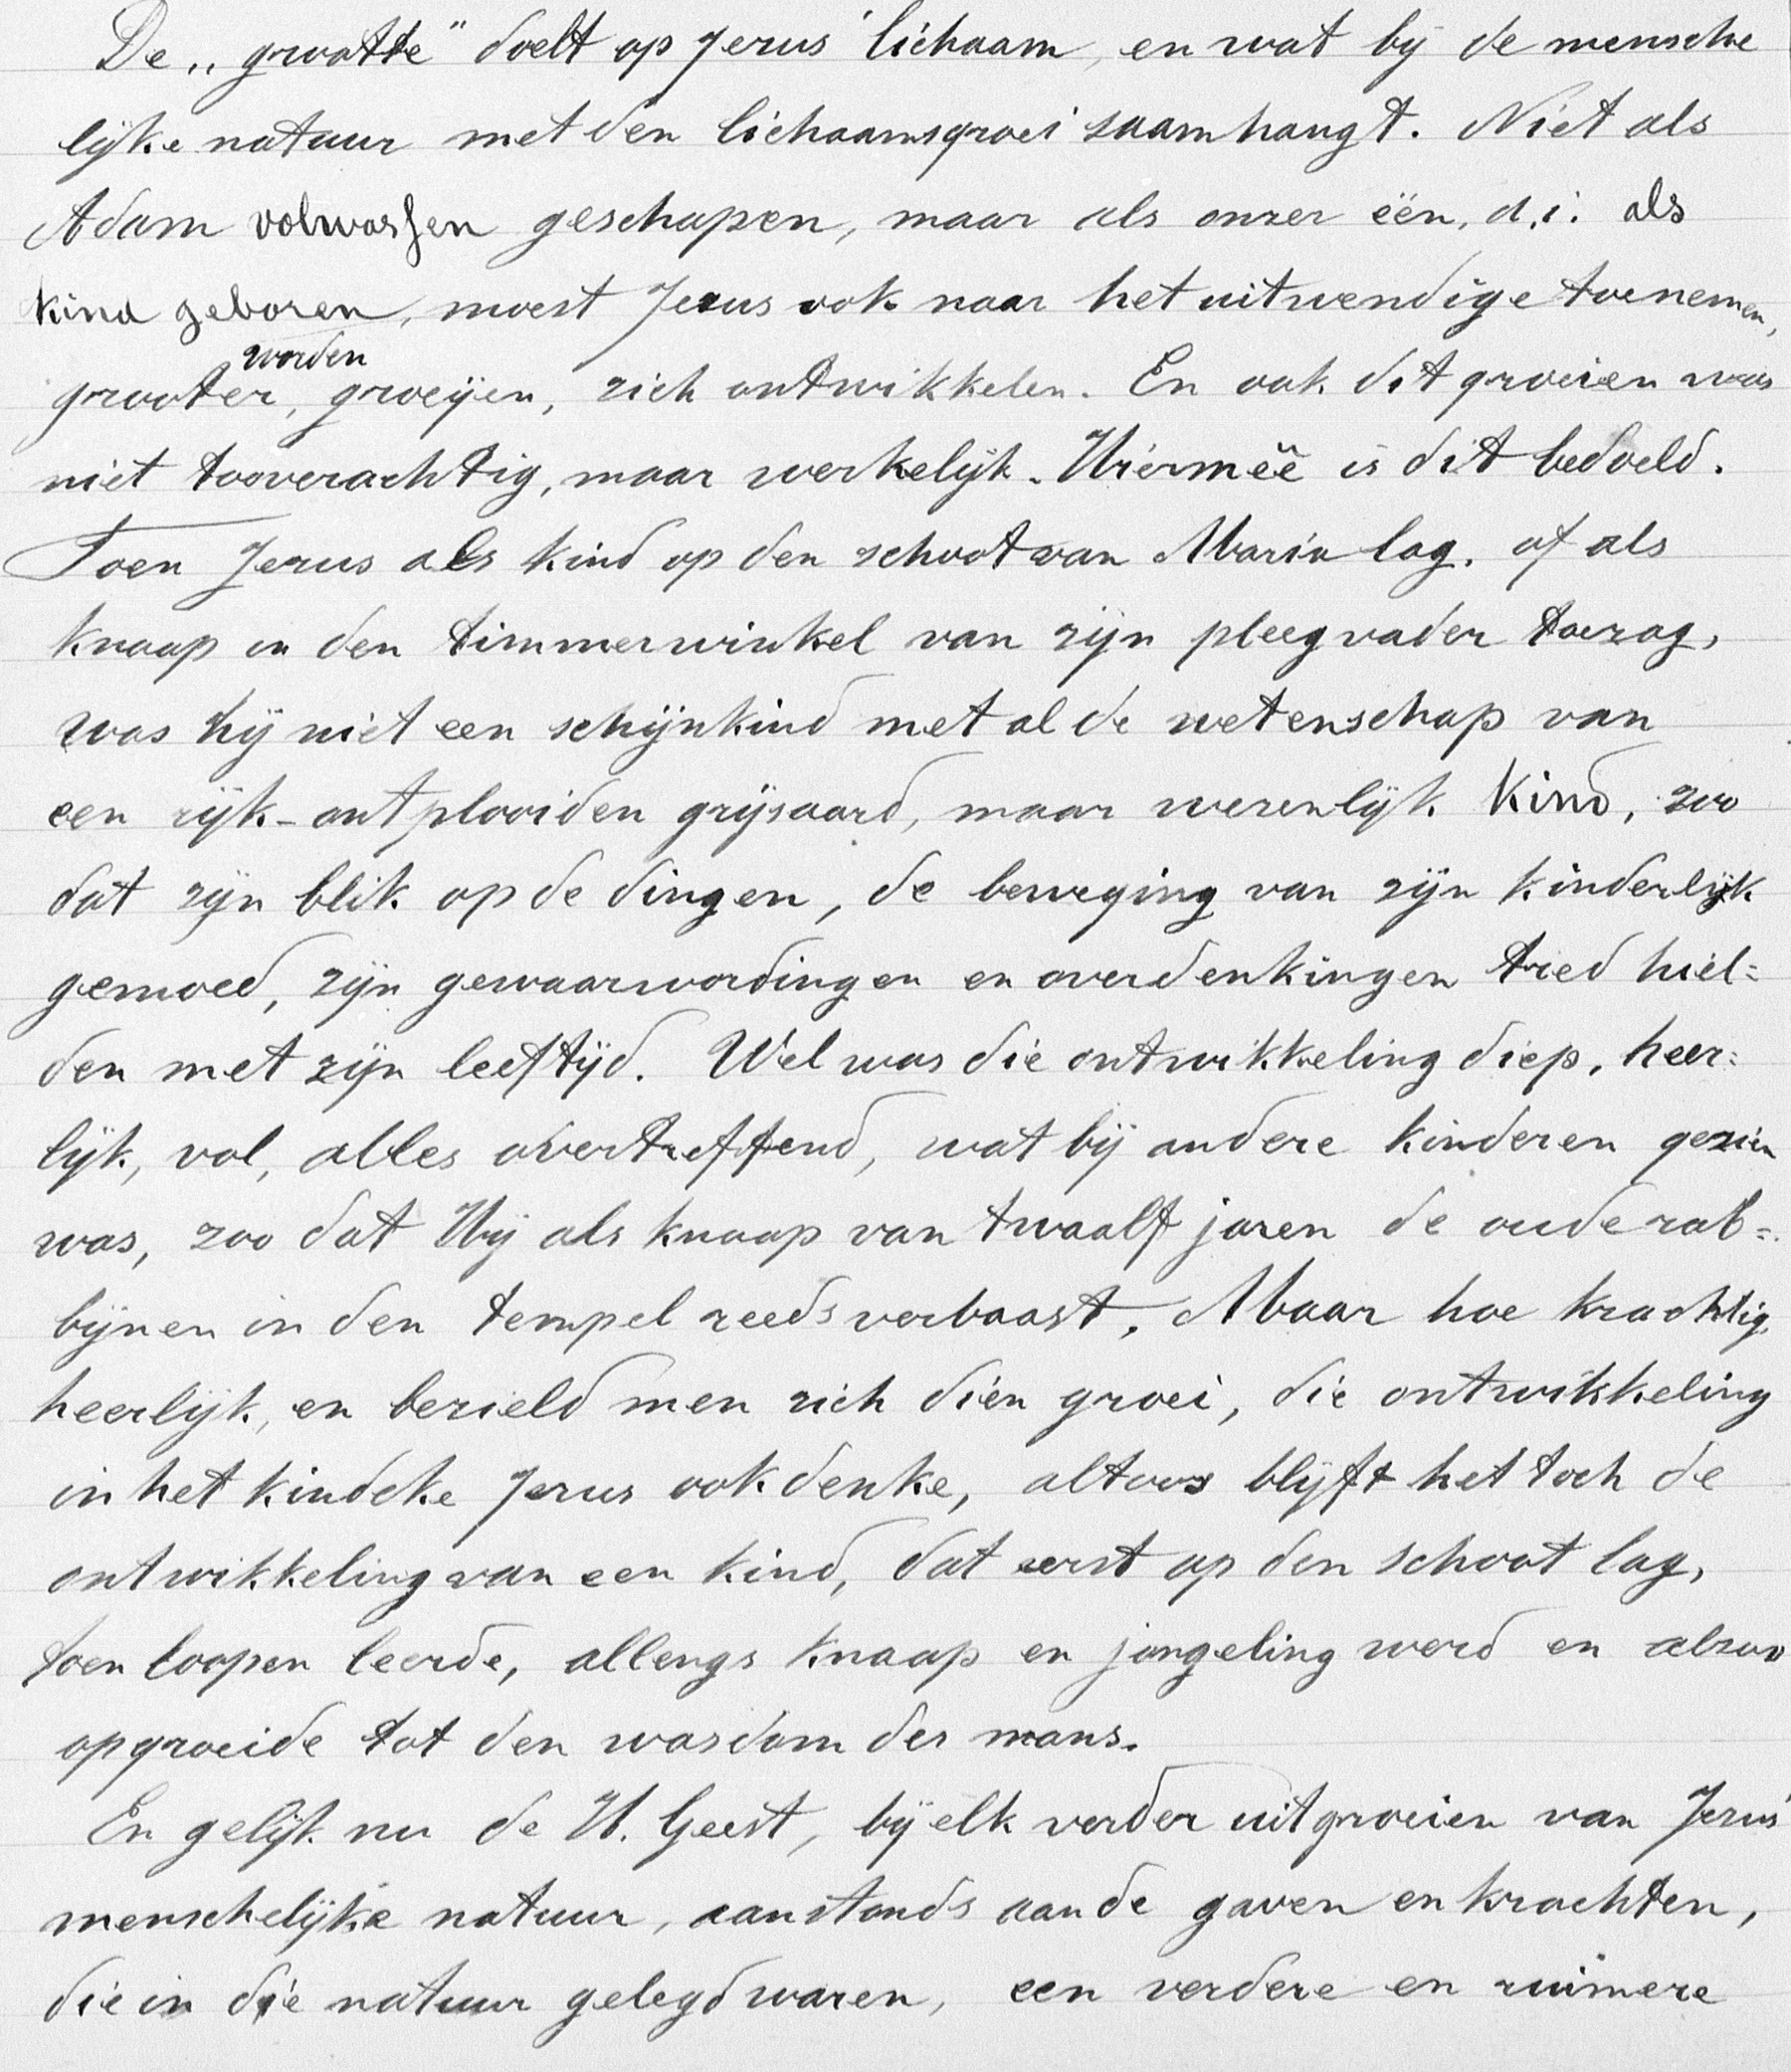 De „grootte" doelt op Jezus' lichaam, en wat bij de mensche
lijke natuur met den lichaamsgroei saamhangt. Niet als
Adam volwassen geschapen, maar als onzer één, d.i. als
kind geboren, moest Jezus ook naar het uitwendige toenemen,
grooter worden, groeijen, zich ontwikkelen. En ook dit groeien was
niet tooverachtig, maar werkelijk. Hiermeê is dit bedoeld.
Toen Jezus als kind op den schoot van Maria lag, of als
knaap in den timmerwinkel van zijn pleegvader toezag,
was hij niet een schijnkind met al de wetenschap van
een rijk-ontplooiden grijsaard, maar wezenlijk kind, zoo
dat zijn blik op de dingen, de beweging van zijn kinderlijk
gemoed, zijn gewaarwordingen en overdenkingen tred hiel=
den met zijn leeftijd. Wel was die ontwikkeling diep, heer=
lijk, vol, alles overtreffend, wat bij andere kinderen gezien
was, zoo dat Hij als knaap van twaalf jaren de oude rab=
bijnen in den tempel reeds verbaast. Maar hoe krachtig,
heerlijk, en bezield men zich dien groei, die ontwikkeling
in het kindeke Jezus ook denke, altoos blijft het toch de
ontwikkeling van een kind, dat eerst op den schoot lag,
toen loopen leerde, allengs knaap en jongeling werd en alzoo
opgroeide tot den wasdom des mans.
En gelijk nu de H. Geest, bij elk verder uitgroeien van Jezus'
menschelijke natuur, aanstonds aan de gaven en krachten,
die in die natuur gelegd waren, een verdere en ruimere